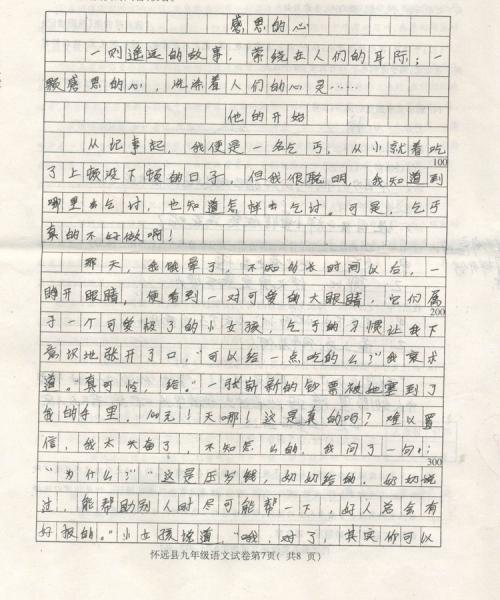 感恩的心
一则遥远的故事，萦绕在人们的耳际；一
颗感恩的心，洗涤着人们的心灵……
他的开始
从记事起，我便是一名乞丐，从小就着吃
100
了上顿没下顿的日子，但我很聪明，我知道到
哪里去乞讨，也知道怎样去乞讨。可是，乞丐
真的不好做啊！
那天，我饿晕了，不知多长时间以后，一
睁开眼睛，便看到一对可爱的大眼睛，它们属
200
于一个可爱极了的小女孩，乞丐的习惯让我下
意识地张开了口，“可以给一点吃的么？”我哀求
道。“真可怜，给。”一张崭新的钞票被她塞到了
我的手里，100元！天哪！这是真的吗？难以置
信，我太兴奋了，不知怎么的，我问了一句：
300
“为什么？”“这是压岁钱，奶奶给的，奶奶说
过，能帮助别人时尽可能帮一下，好人总会有
好报的。”小女孩说道，“哦，对了，其实你可以
怀远县九年级语文试卷第7页（共8页）